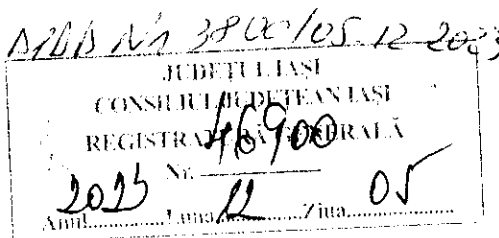 Nr 3800/05.12.2023
JUDEȚUL IAȘI
CONSILIUL JUDEȚEAN IAȘI
REGISTRATURĂ GENERALĂ
Nr. 46900
Anul 2023 Luna 12 Ziua 05